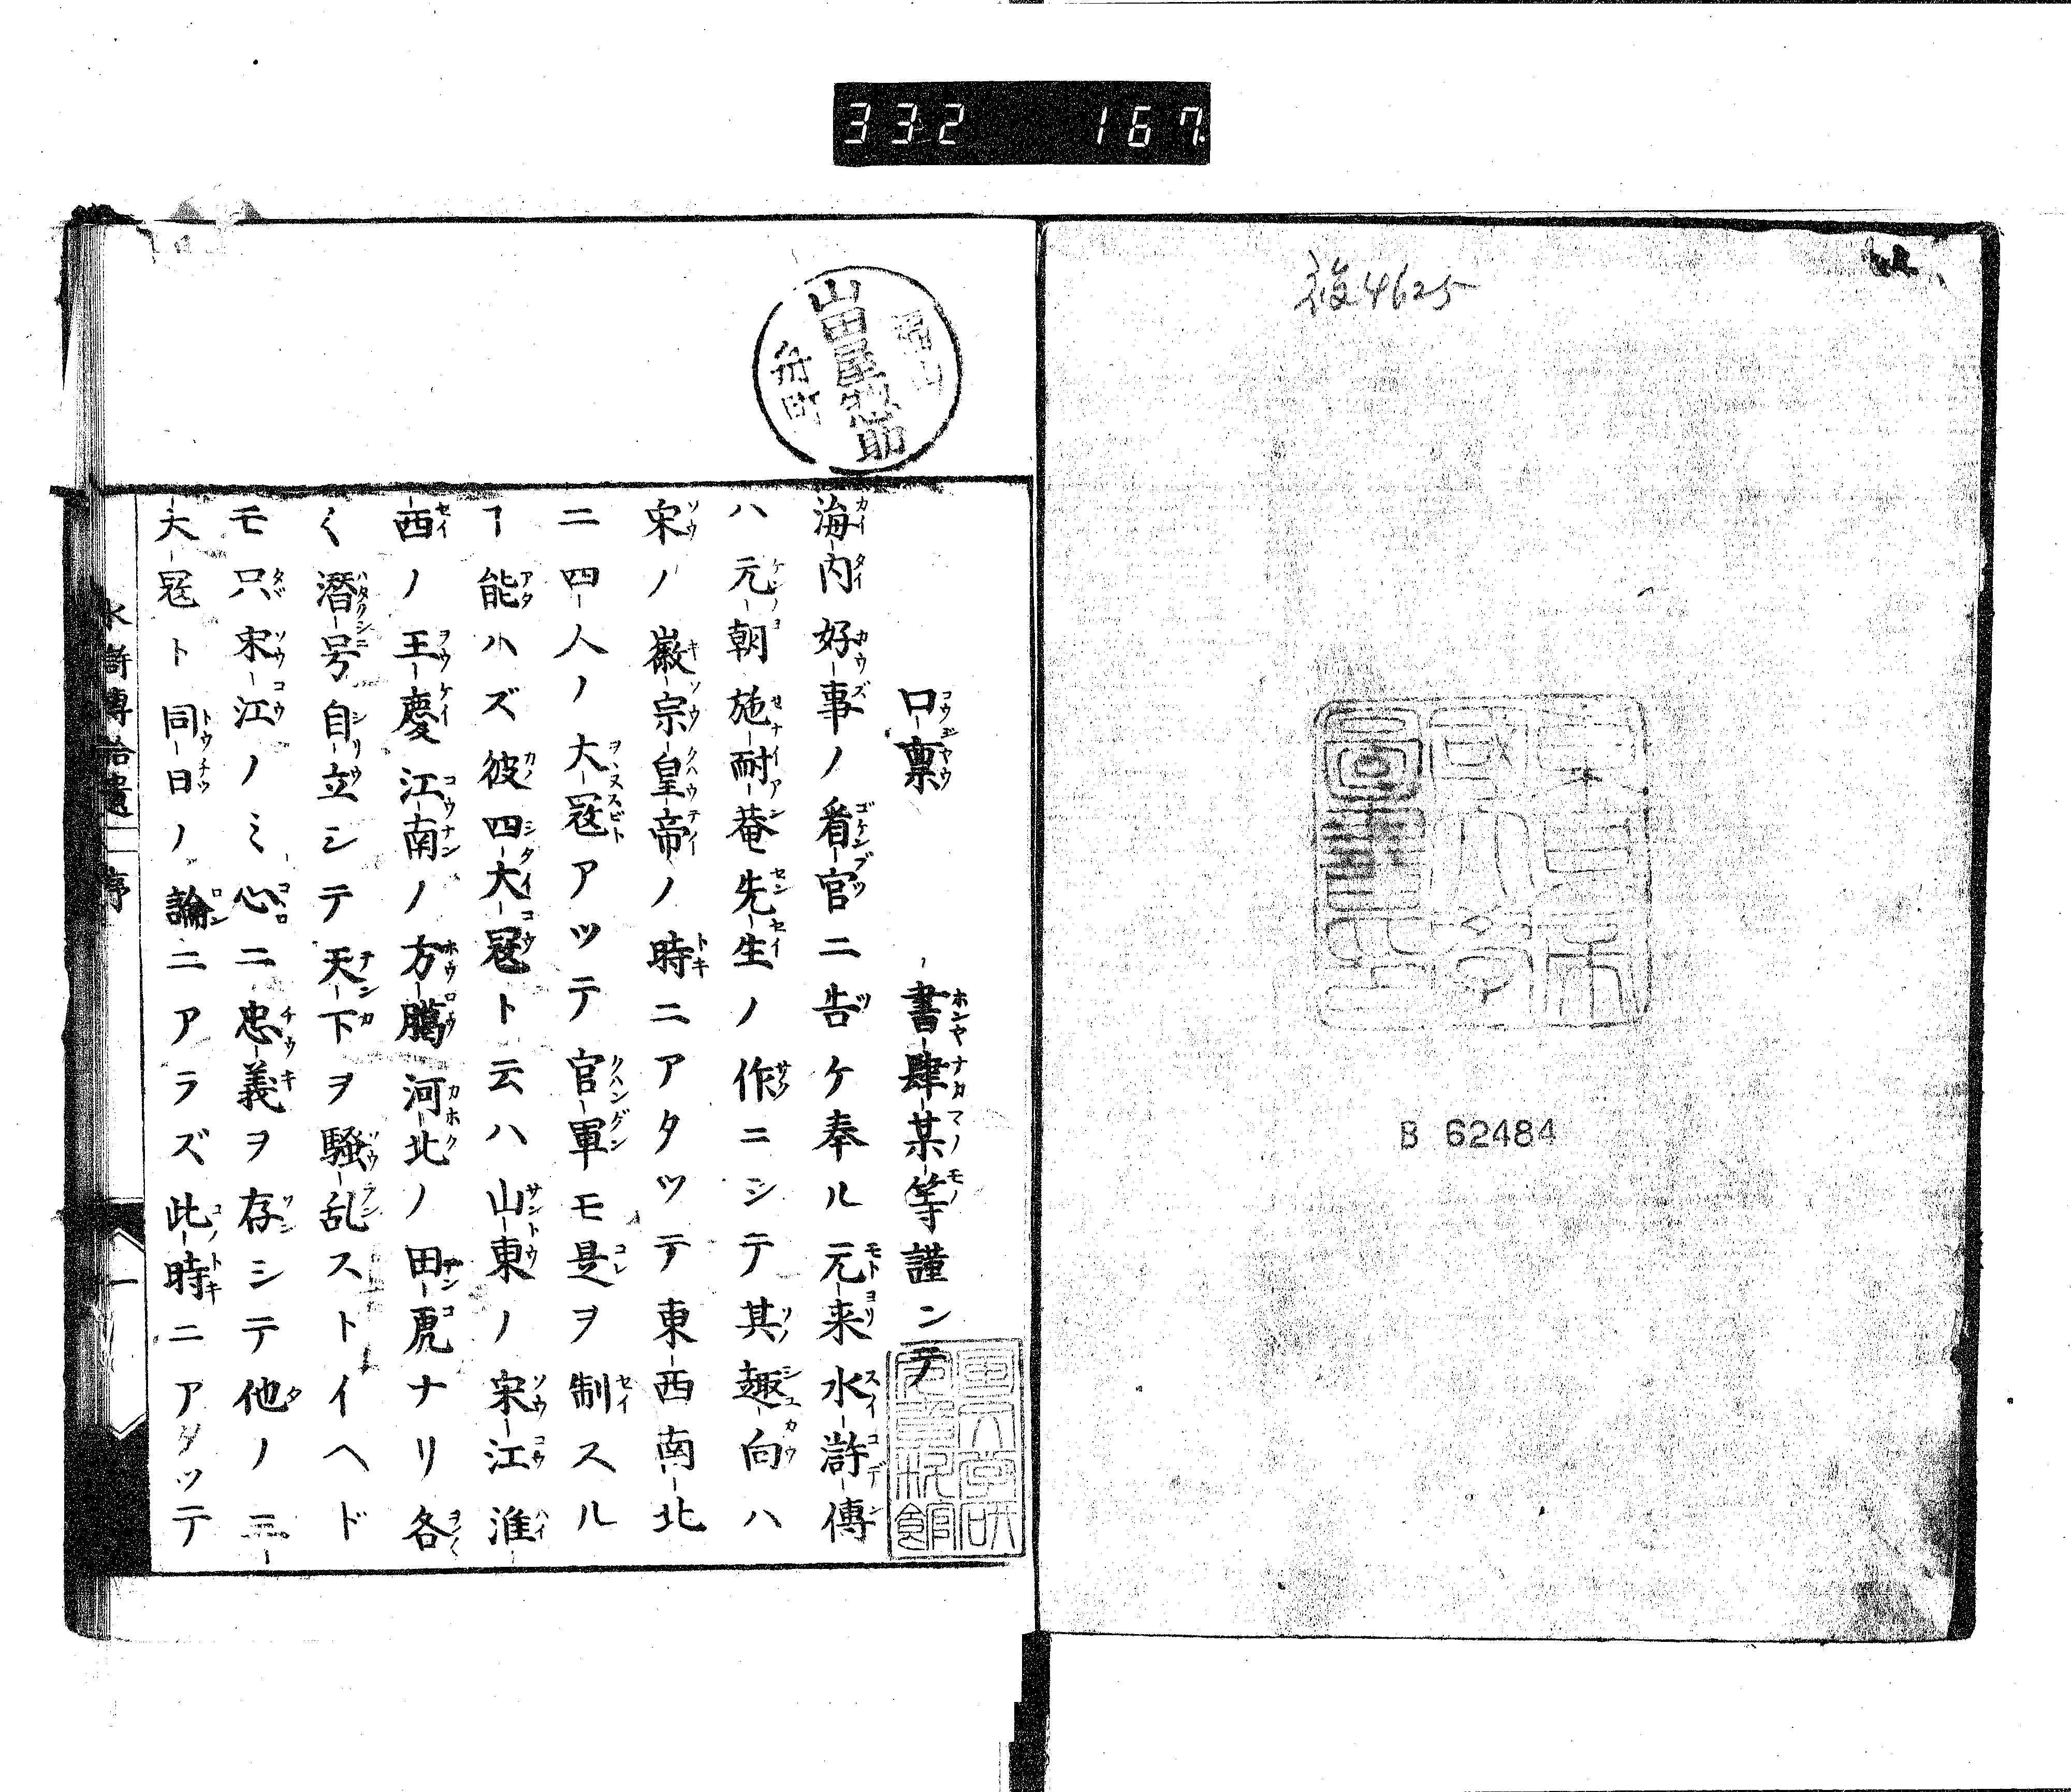 332 167
複4625
B 62484
山田屋惣助
舟町
口禀 書肆某等謹ンテ
海内好事ノ看官ニ告ケ奉ル元来水滸傳
ハ元朝施耐菴先生ノ作ニシテ其趣向ハ
宋ノ徽宗皇帝ノ時ニアタツテ東西南北
ニ四人ノ大冦アツテ官軍モ是ヲ制スル
ヿ能ハズ彼四大冦ト云ハ山東ノ宋江淮
西ノ王慶江南ノ方臈河北ノ田虎ナリ各
〱潜号自立シテ天下ヲ騒乱ストイヘド
モ只宋江ノミ心ニ忠義ヲ存シテ他ノ三
大冦ト同日ノ論ニアラズ此時ニアタツテ
水滸傳拾遺 序 一